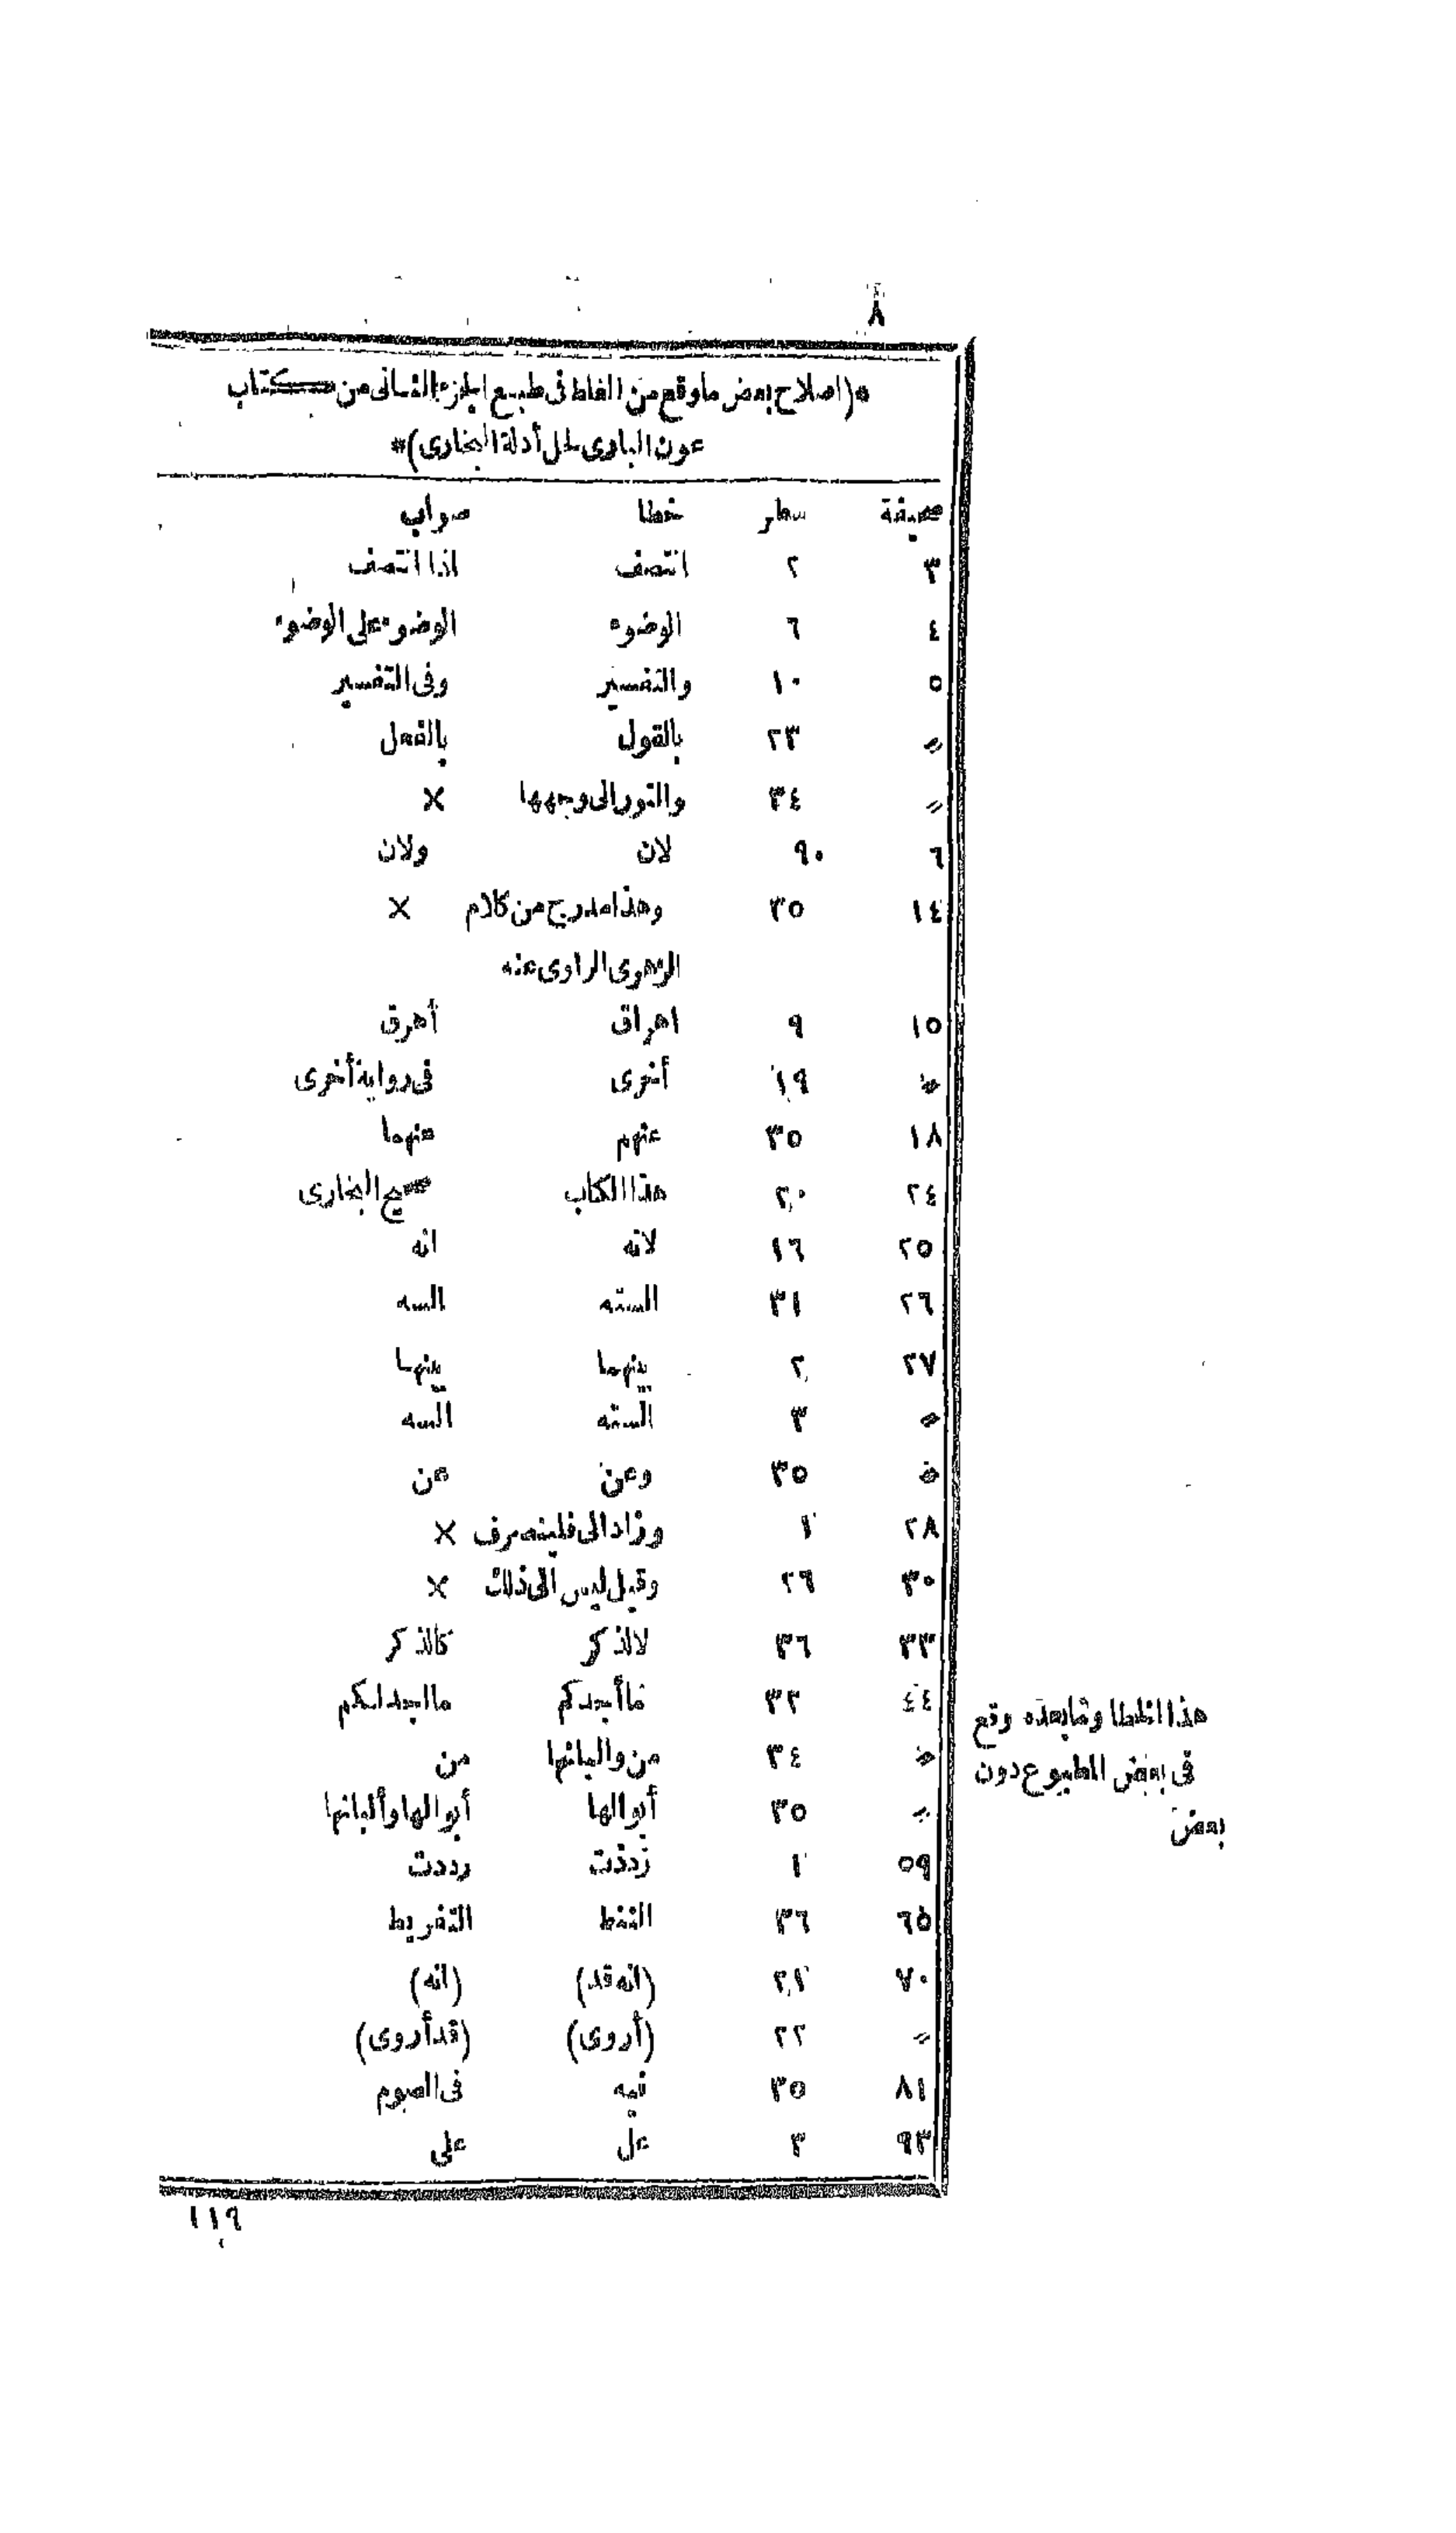 ٨
*(اصلاح بعض ما وقع من الغلط فى طبع الجزء الثانى من كتاب
عون البارى لحل أدلة البخارى)*
صحيفة سطر خطا صواب
٣ ٢ انتصف اذا انتصف
٤ ٦ الوضوء الوضوء على الوضوء
٥ ١٠ والتفسير وفى التفسير
〃 ٢٣ بالقول بالفعل
〃 ٣٤ والنور الى وجهها ×
٦ ٩٠ لان ولان
١٤ ٣٥ وهذا مدرج من كلام ×
الزهرى الراوى عنه
١٥ ٩ اهراق أهرق
〃 ١٩ أخرى فى رواية أخرى
١٨ ٣٥ عنهم عنهما
٢٤ ٢٠ هذا الكتاب صحيح البخارى
٢٥ ١٦ لانه انه
٢٦ ٣١ السته السه
٢٧ ٢ بينهما بينها
〃 ٣ السته السه
〃 ٣٥ وعن عن
٢٨ ١ وزاد الى فلينصرف ×
٣٠ ٢٦ وقيل ليس الى ذلك ×
٣٣ ٣٦ لالذكر كالذكر
٤٤ ٣٢ فاأجدكم ما اجد لكم
هذا الخطا وما بعده وقع
فى بعض المطبوع دون
بعض
〃 ٣٤ من والبانها من
〃 ٣٥ أبوالها أبوالها وألبانها
٥٩ ١ رددت
٦٥ ٣٦ التفريط
٧٠ ٢١ (انه قد) (انه)
〃 ٢٢ (أروى) (قد أروى)
٨١ ٣٥ فيه فى الصوم
٩٣ ٣ عل على
١١٩